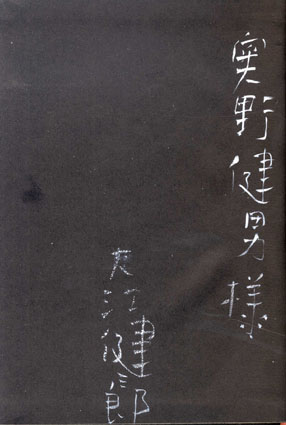 奥野健男様
大江健三郎